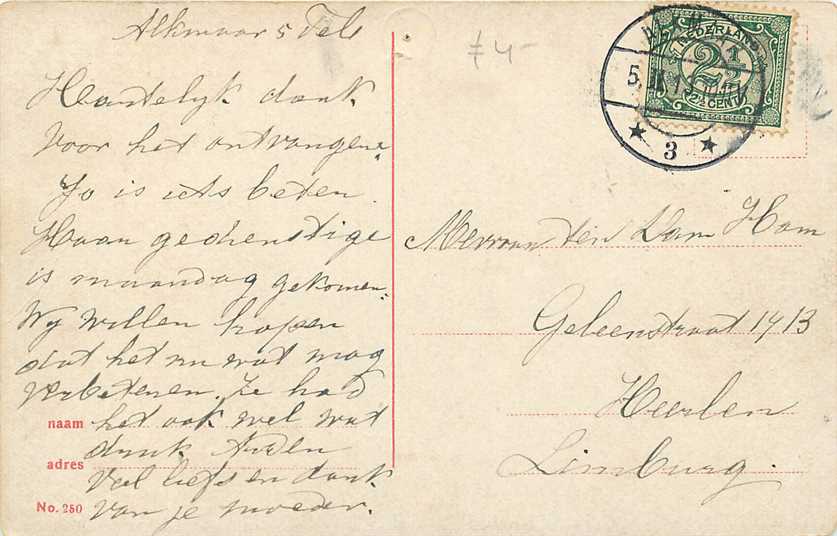 Alkmaar 5 Feb
Hartelijk dank
voor het ontvangene.
Jo is iets beter.
Haar gedienstige
is maandag gekomen.
Wij willen hopen
dat het nu wat mag
verbeteren. Ze had
het ook wel wat
druk
Veel liefs en dank
van je moeder.
naam
adres
No. 250
≠ 4-
NEDERLAND
2½
2½ CENT
3
Mevrouw ten Dam Ham
Geleenstraat 1413
Heerlen
Limburg.